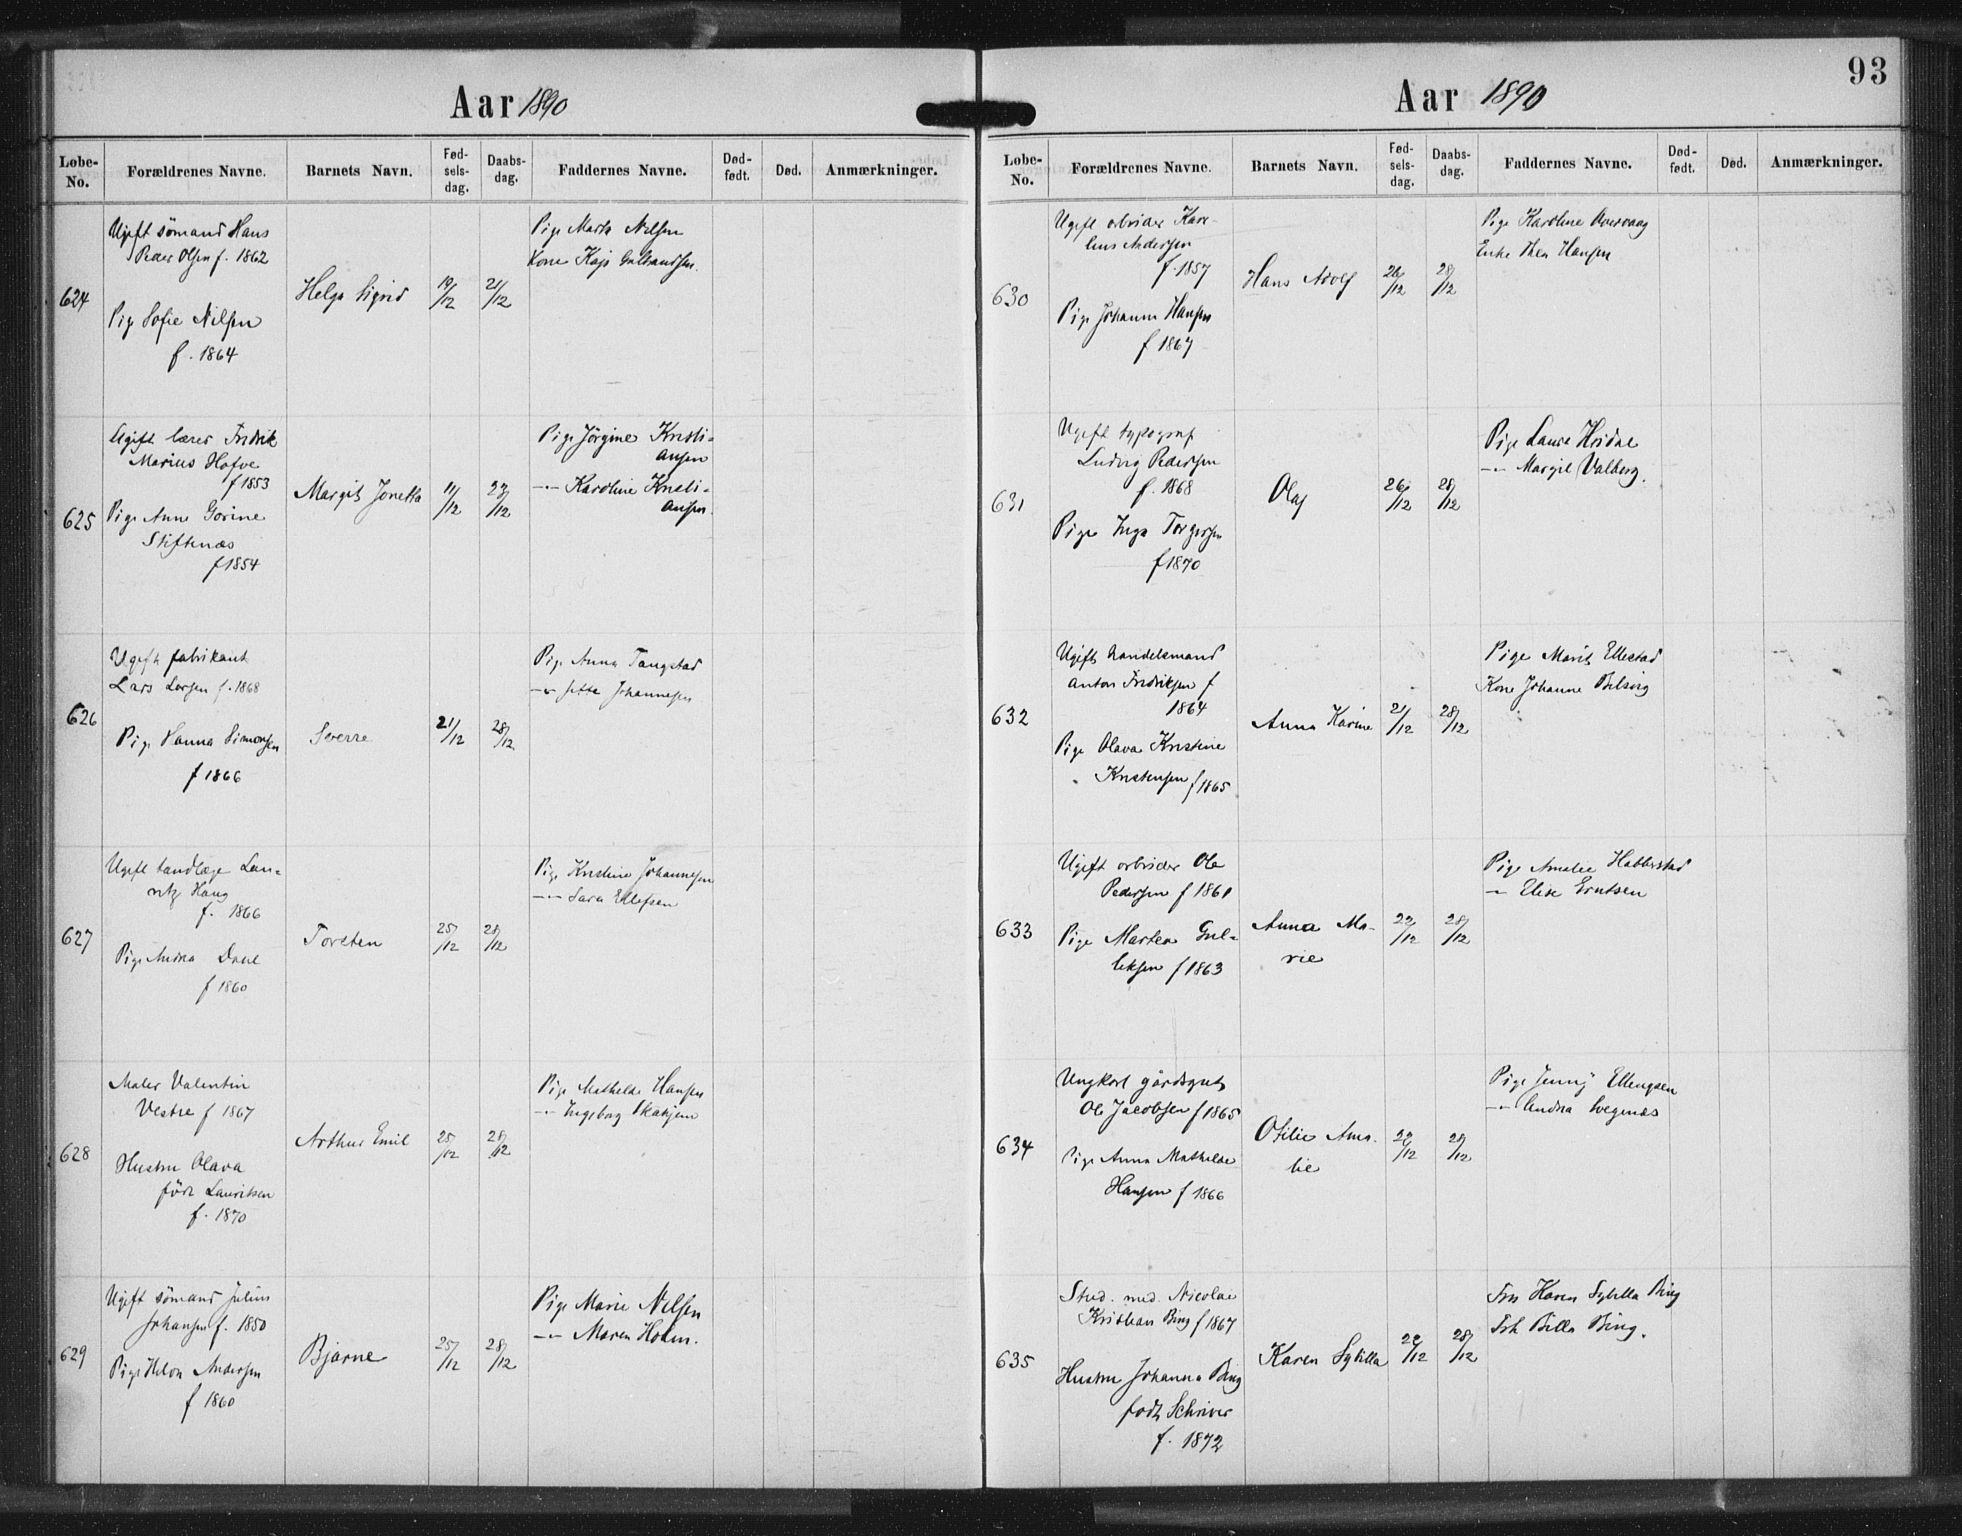 Aar 1890
Løbe-No.
Forældrenes Navne.
Barnets Navn.
Fød-sels-dag.
Daabs-dag.
Faddernes Navne.
Død-født.
Død.
Anmærkninger.
624
Ugift sömand Hans
Peder Olsen f. 1862
Pige Sofie Nilsen
f. 1864
Helga Sigrid
19/12
21/12
Pige Marta Nilsen
Kone Kaja Gulbrandsen.
625
Ugift lærer Fredrik
Marius Hofve
f 1853
Pige Anne Gorine
Stiftnæs
f 1854
Margit Jonetta
11/12
23/12
Pige Jörgine Kristi-
ansen
-"- Karoline Kristi-
ansen.
626
Ugift fabrikant
Lars Larsen f. 1868
Pige Hanna Simonsen
f 1866
Sverre
21/12
28/12
Pige Anna Tangstad
-"- Jette Johannesen
627
Ugift tandlæge Lau-
ritz Haug
f. 1866
Pige Andrea
f 1860
Torsten
25/12
28/12
Pige Kristine Johannesen
-"- Sara Ellefsen
628
Maler Valentin
Vestre f 1867
Hustru Olava
född Lauritsen
f. 1870
Arthur Emil
25/12
28/12
Pige Mathilde Hansen
-"- Ingeborg
629
Ugift sömand Julius
Johansen f. 1850
Pige Andersen
f 1860
Bjarne
25/12
28/12
Pige Marie Nilsen
-"- Maren Holm.
93
Aar 1890
Løbe-No.
Forældrenes Navne.
Barnets Navn.
Fød-sels-dag.
Daabs-dag.
Faddernes Navne.
Død-født.
Død.
Anmærkninger.
630
Ugift arbeider Kare-
lius Andersen
f. 1857
Pige Johanne Hansen
f 1867
Hans Adolf
26/12
28/12
Pige Karoline Overvaag
Enke Thea Hansen
631
Ugift typograf
Ludvig Pedersen
f. 1868
Pige Inga Torgersen
f 1870
Olaf
26/12
28/12
Pige Laura
-"- Margit Valberg.
632
Ugift handelsmand
Anton Fredriksen f
1864
Pige Olava Kristine
Kristensen f 1865
Anna Karine
21/12
28/12
Pige Marit Ellestad
Kone Johanne
633
Ugift arbeider Ole
Pedersen f 1861
Pige Martea Gul-
leksen f 1863
Anna Ma-
rie
22/12
28/12
Pige Amalie Habberstad
-"- Elise Erntsen
634
Ungkarl gårdsgut
Ole Jacobsen f 1865
Pige Anna Mathilde
Hansen f 1866
Otilie Ama-
lie
22/12
28/12
Pige Jenny Ellengsen
-"- Andrea
635
Stud. med. Nicolai
Kristian Bing f 1867
Hustru Johanna Bing
född Schriver
f. 1872
Karen Sybilla
22/12
28/12
Fru Karen Sybilla Bing
Frk Billa Bing.